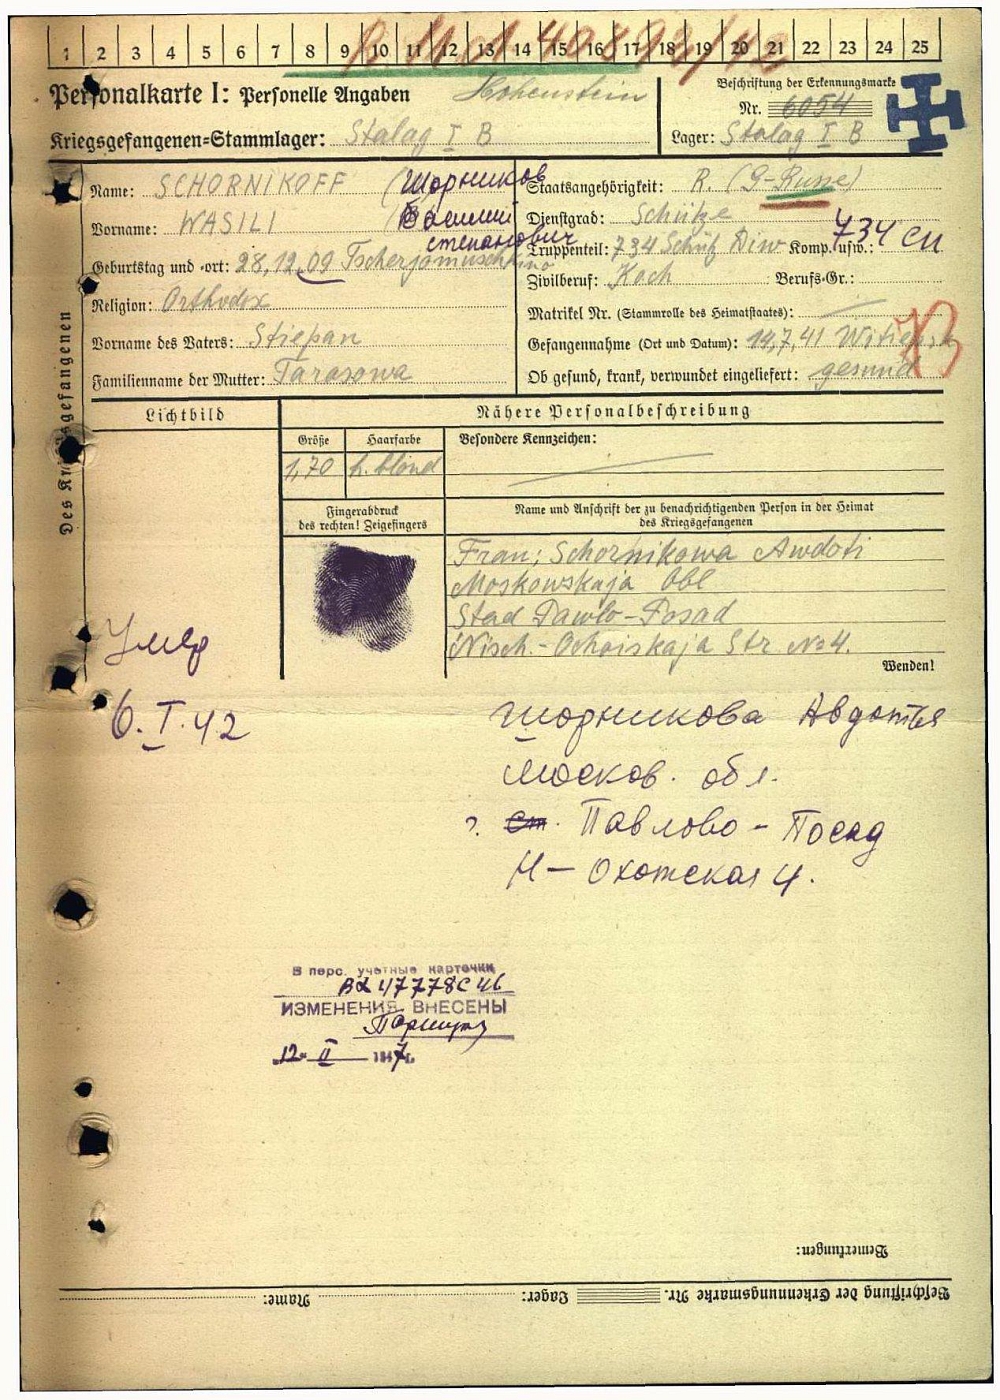 1 2 3 4 5 6 7 8 9 10 11 12 13 14 15 16 17 18 19 20 21 22 23 24 25
Personalkarte I: Personelle Angaben
Hohenstein
Kriegsgefangenen-Stammlager: Stalag I B
Beschriftung der Erkennungsmarke
Nr. 6054
Lager: Stalag I B
Des Kriegsgefangenen
Name: SCHORNIKOFF (Шорников
Vorname: WASILI (Василий
степанович
Geburtstag und -ort: 28.12.09 Tscherjomuschkino
Religion: Orthodox
Vorname des Vaters: Stiepan
Familienname der Mutter: Tarasowa
Staatsangehörigkeit: R. (G-Russe)
Dienstgrad: Schütze
Truppenteil: 734 Schütz Diw Komp. usw.: 734 СП
Zivilberuf: Koch Berufs-Gr.:
Matrikel Nr. (Stammrolle des Heimatstaates):
Gefangennahme (Ort und Datum): 19,7,41 Witiepsk
Ob gesund, krank, verwundet eingeliefert: gesund
Lichtbild
Nähere Personalbeschreibung
Größe Haarfarbe Besondere Kennzeichen:
1,70 h. blond
Fingerabdruck
des rechten! Zeigefingers
Name und Anschrift der zu benachrichtigenden Person in der Heimat
des Kriegsgefangenen
Frau; Schornikowa Awdoti
Moskowskaja Obl
Stad Pawlo-Posad
Nisch.-Ochoiskaja Str No 4.
Wenden!
Умер
6.I.42
Шорникова Авдотья
Москов. обл.
Павлово - Посад
Н - Охотская 4.
В перс. учетные карточки
ИЗМЕНЕНИЯ ВНЕСЕНЫ
12 II 1947г.
Bemerkungen:
Beschriftung der Erkennungsmarke Nr. Lager: Name: